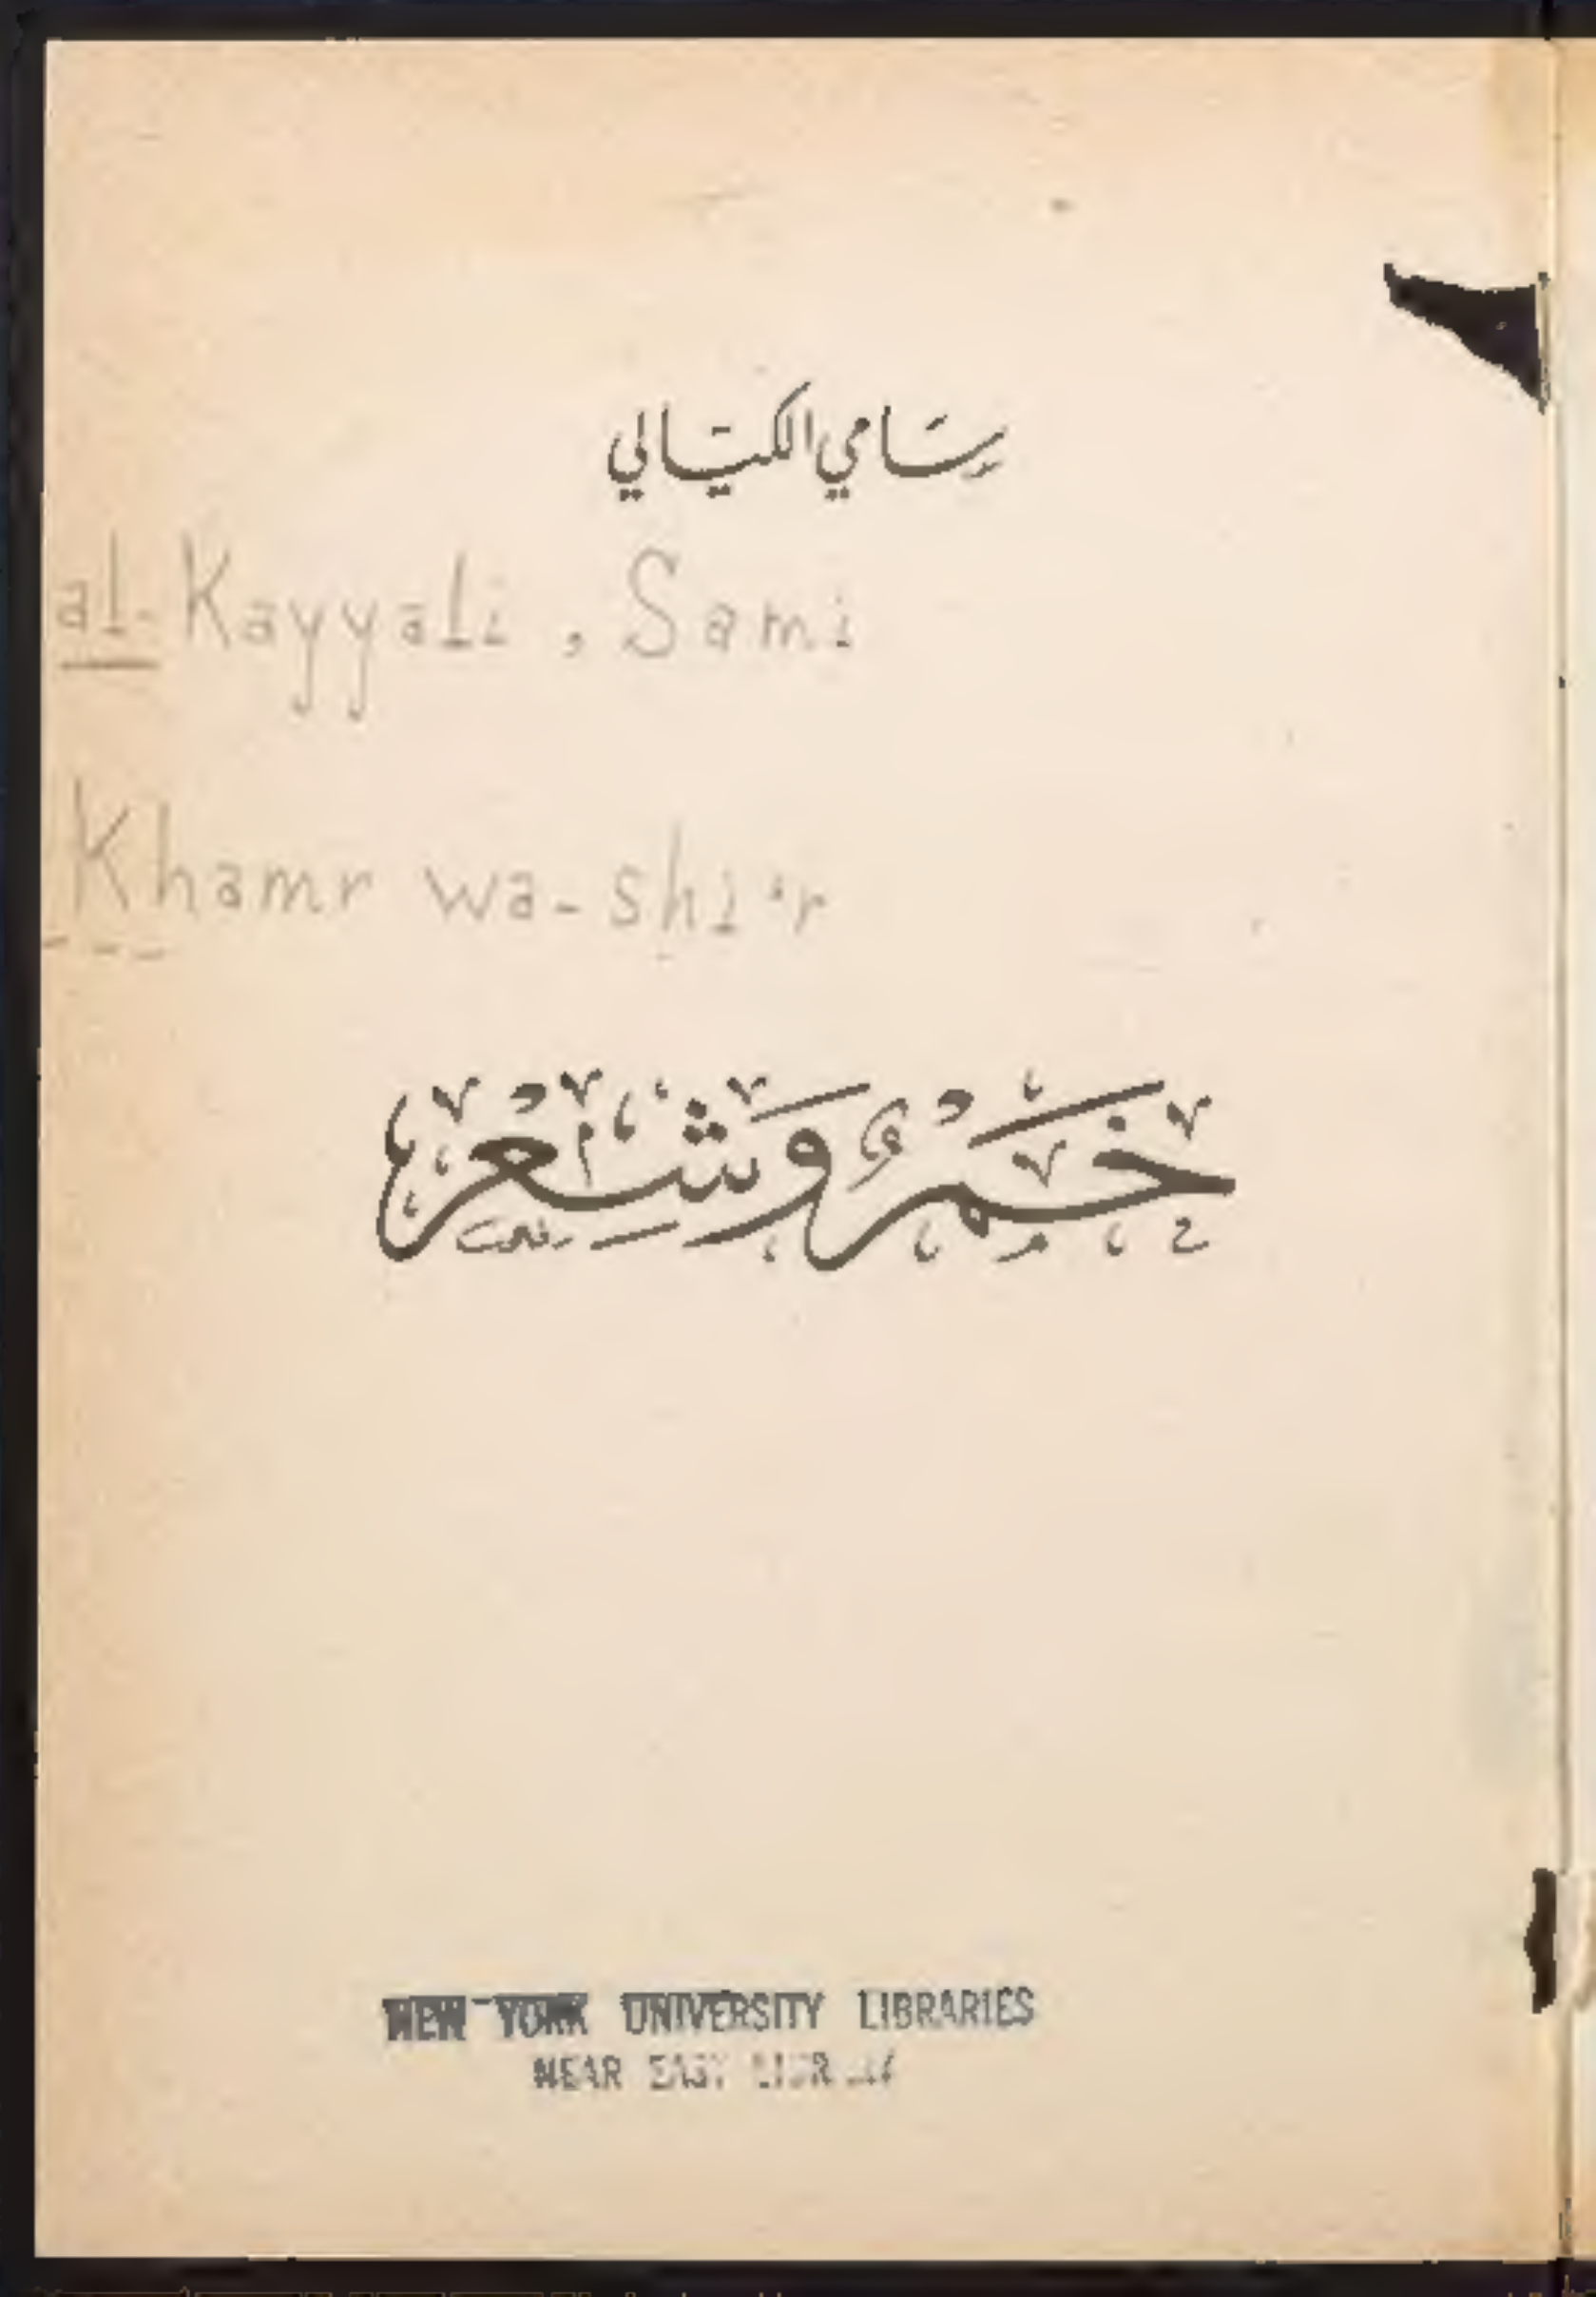 سامي الكيالي
al-Kayyali, Sami
Khamr wa-shi'r
خَمْرٌ وَشِعْرٌ
NEW YORK UNIVERSITY LIBRARIES
NEAR EAST LIBRARY